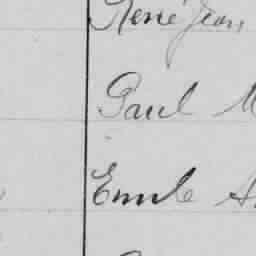 René Jean
Paul M
Emile A